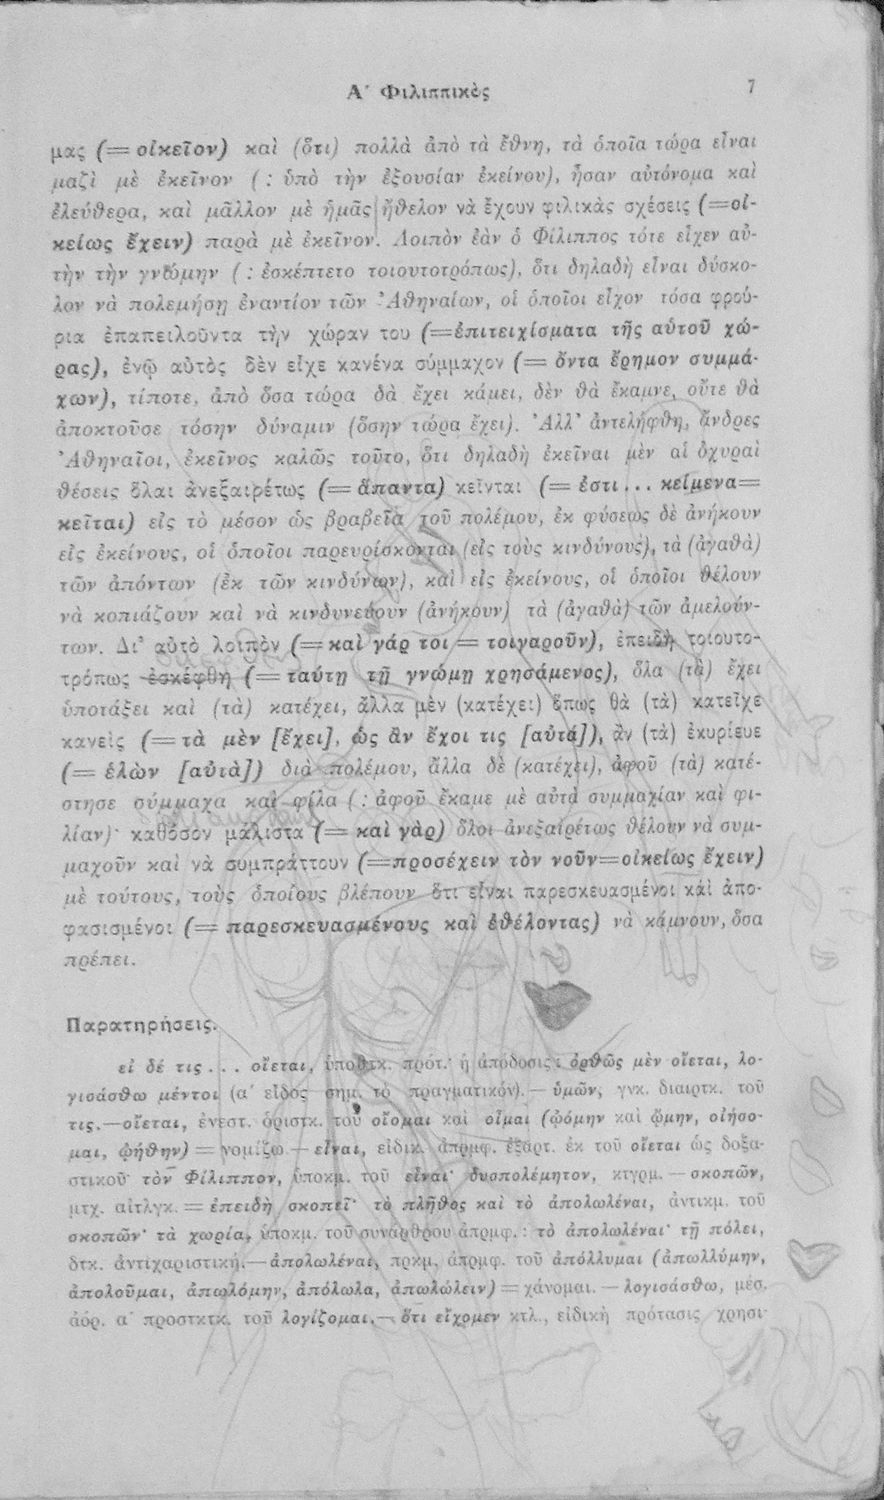 Α΄ Φιλιππικὸς
7
μας (= οἰκεῖον) καὶ (ὅτι) πολλὰ ἀπὸ τὰ ἔθνη, τὰ ὁποῖα τώρα εἶναι
μαζὶ μὲ ἐκεῖνον ( : ὑπὸ τὴν ἐξουσίαν ἐκείνου), ἦσαν αὐτόνομα καὶ
ἐλεύθερα, καὶ μᾶλλον μὲ ἡμᾶς ἤθελον νὰ ἔχουν φιλικὰς σχέσεις (=οἰ-
κείως ἔχειν) παρὰ μὲ ἐκεῖνον. Λοιπὸν ἐὰν ὁ Φίλιππος τότε εἶχεν αὐ-
τὴν τὴν γνώμην ( : ἐσκέπτετο τοιουτοτρόπως), ὅτι δηλαδὴ εἶναι δύσκο-
λον νὰ πολεμήσῃ ἐναντίον τῶν Ἀθηναίων, οἱ ὁποῖοι εἶχον τόσα φρού-
ρια ἐπαπειλοῦντα τὴν χώραν του (=ἐπιτειχίσματα τῆς αὑτοῦ χώ-
ρας), ἐνῷ αὐτὸς δὲν εἶχε κανένα σύμμαχον (= ὄντα ἔρημον συμμά-
χων), τίποτε, ἀπὸ ὅσα τώρα δὰ ἔχει κάμει, δὲν θὰ ἔκαμνε, οὔτε θὰ
ἀποκτοῦσε τόσην δύναμιν (ὅσην τώρα ἔχει). Ἀλλ' ἀντελήφθη, ἄνδρες
Ἀθηναῖοι, ἐκεῖνος καλῶς τοῦτο, ὅτι δηλαδὴ ἐκεῖναι μὲν αἱ ὀχυραὶ
θέσεις ὅλαι ἀνεξαιρέτως (= ἅπαντα) κεῖνται (= ἐστι... κείμενα=
κεῖται) εἰς τὸ μέσον ὡς βραβεῖα τοῦ πολέμου, ἐκ φύσεως δὲ ἀνήκουν
εἰς ἐκείνους, οἱ ὁποῖοι παρευρίσκονται (εἰς τοὺς κινδύνους), τὰ (ἀγαθὰ)
τῶν ἀπόντων (ἐκ τῶν κινδύνων), καὶ εἰς ἐκείνους, οἱ ὁποῖοι θέλουν
νὰ κοπιάζουν καὶ νὰ κινδυνεύουν (ἀνήκουν) τὰ (ἀγαθὰ) τῶν ἀμελούν-
των. Δι' αὐτὸ λοιπὸν (= καὶ γάρ τοι = τοιγαροῦν), ἐπειδὴ τοιουτο-
τρόπως ἐσκέφθη (= ταύτῃ τῇ γνώμῃ χρησάμενος), ὅλα (τὰ) ἔχει
ὑποτάξει καὶ (τὰ) κατέχει, ἄλλα μὲν (κατέχει) ὅπως θὰ (τὰ) κατεῖχε
κανεὶς (= τὰ μὲν [ἔχει], ὡς ἂν ἔχοι τις [αὐτά]), ἂν (τὰ) ἐκυρίευε
(= ἑλὼν [αὐτὰ]) διὰ πολέμου, ἄλλα δὲ (κατέχει), ἀφοῦ (τὰ) κατέ-
στησε σύμμαχα καὶ φίλα ( : ἀφοῦ ἔκαμε μὲ αὐτὰ συμμαχίαν καὶ φι-
λίαν)· καθόσον μάλιστα (= καὶ γὰρ) ὅλοι ἀνεξαιρέτως θέλουν νὰ συμ-
μαχοῦν καὶ νὰ συμπράττουν (=προσέχειν τὸν νοῦν=οἰκείως ἔχειν)
μὲ τούτους, τοὺς ὁποίους βλέπουν ὅτι εἶναι παρεσκευασμένοι καὶ ἀπο-
φασισμένοι (= παρεσκευασμένους καὶ ἐθέλοντας) νὰ κάμνουν, ὅσα
πρέπει.
Παρατηρήσεις.
εἰ δέ τις... οἴεται, ὑποθτκ. πρότ.· ἡ ἀπόδοσις : ὀρθῶς μὲν οἴεται, λο-
γισάσθω μέντοι (α΄ εἶδος σημ. τὸ πραγματικόν). — ὑμῶν, γνκ. διαιρτκ. τοῦ
τις.—οἴεται, ἐνεστ. ὁριστκ. τοῦ οἴομαι καὶ οἶμαι (ᾠόμην καὶ ᾤμην, οἰήσο-
μαι, ᾠήθην) = νομίζω.— εἶναι, εἰδικ. ἀπρμφ. ἐξάρτ. ἐκ τοῦ οἴεται ὡς δοξα-
στικοῦ· τὸν Φίλιππον, ὑποκμ. τοῦ εἶναι· δυσπολέμητον, κτγρμ. — σκοπῶν,
μτχ. αἰτλγκ. = ἐπειδὴ σκοπεῖ· τὸ πλῆθος καὶ τὸ ἀπολωλέναι, ἀντικμ. τοῦ
σκοπῶν· τὰ χωρία, ὑποκμ. τοῦ συνάρθρου ἀπρμφ. : τὸ ἀπολωλέναι· τῇ πόλει,
δτκ. ἀντιχαριστική.—ἀπολωλέναι, πρκμ. ἀπρμφ. τοῦ ἀπόλλυμαι (ἀπωλλύμην,
ἀπολοῦμαι, ἀπωλόμην, ἀπόλωλα, ἀπωλώλειν) = χάνομαι. — λογισάσθω, μέσ.
ἀόρ. α΄ προστκτκ. τοῦ λογίζομαι.— ὅτι εἴχομεν κτλ., εἰδικὴ πρότασις χρησι-